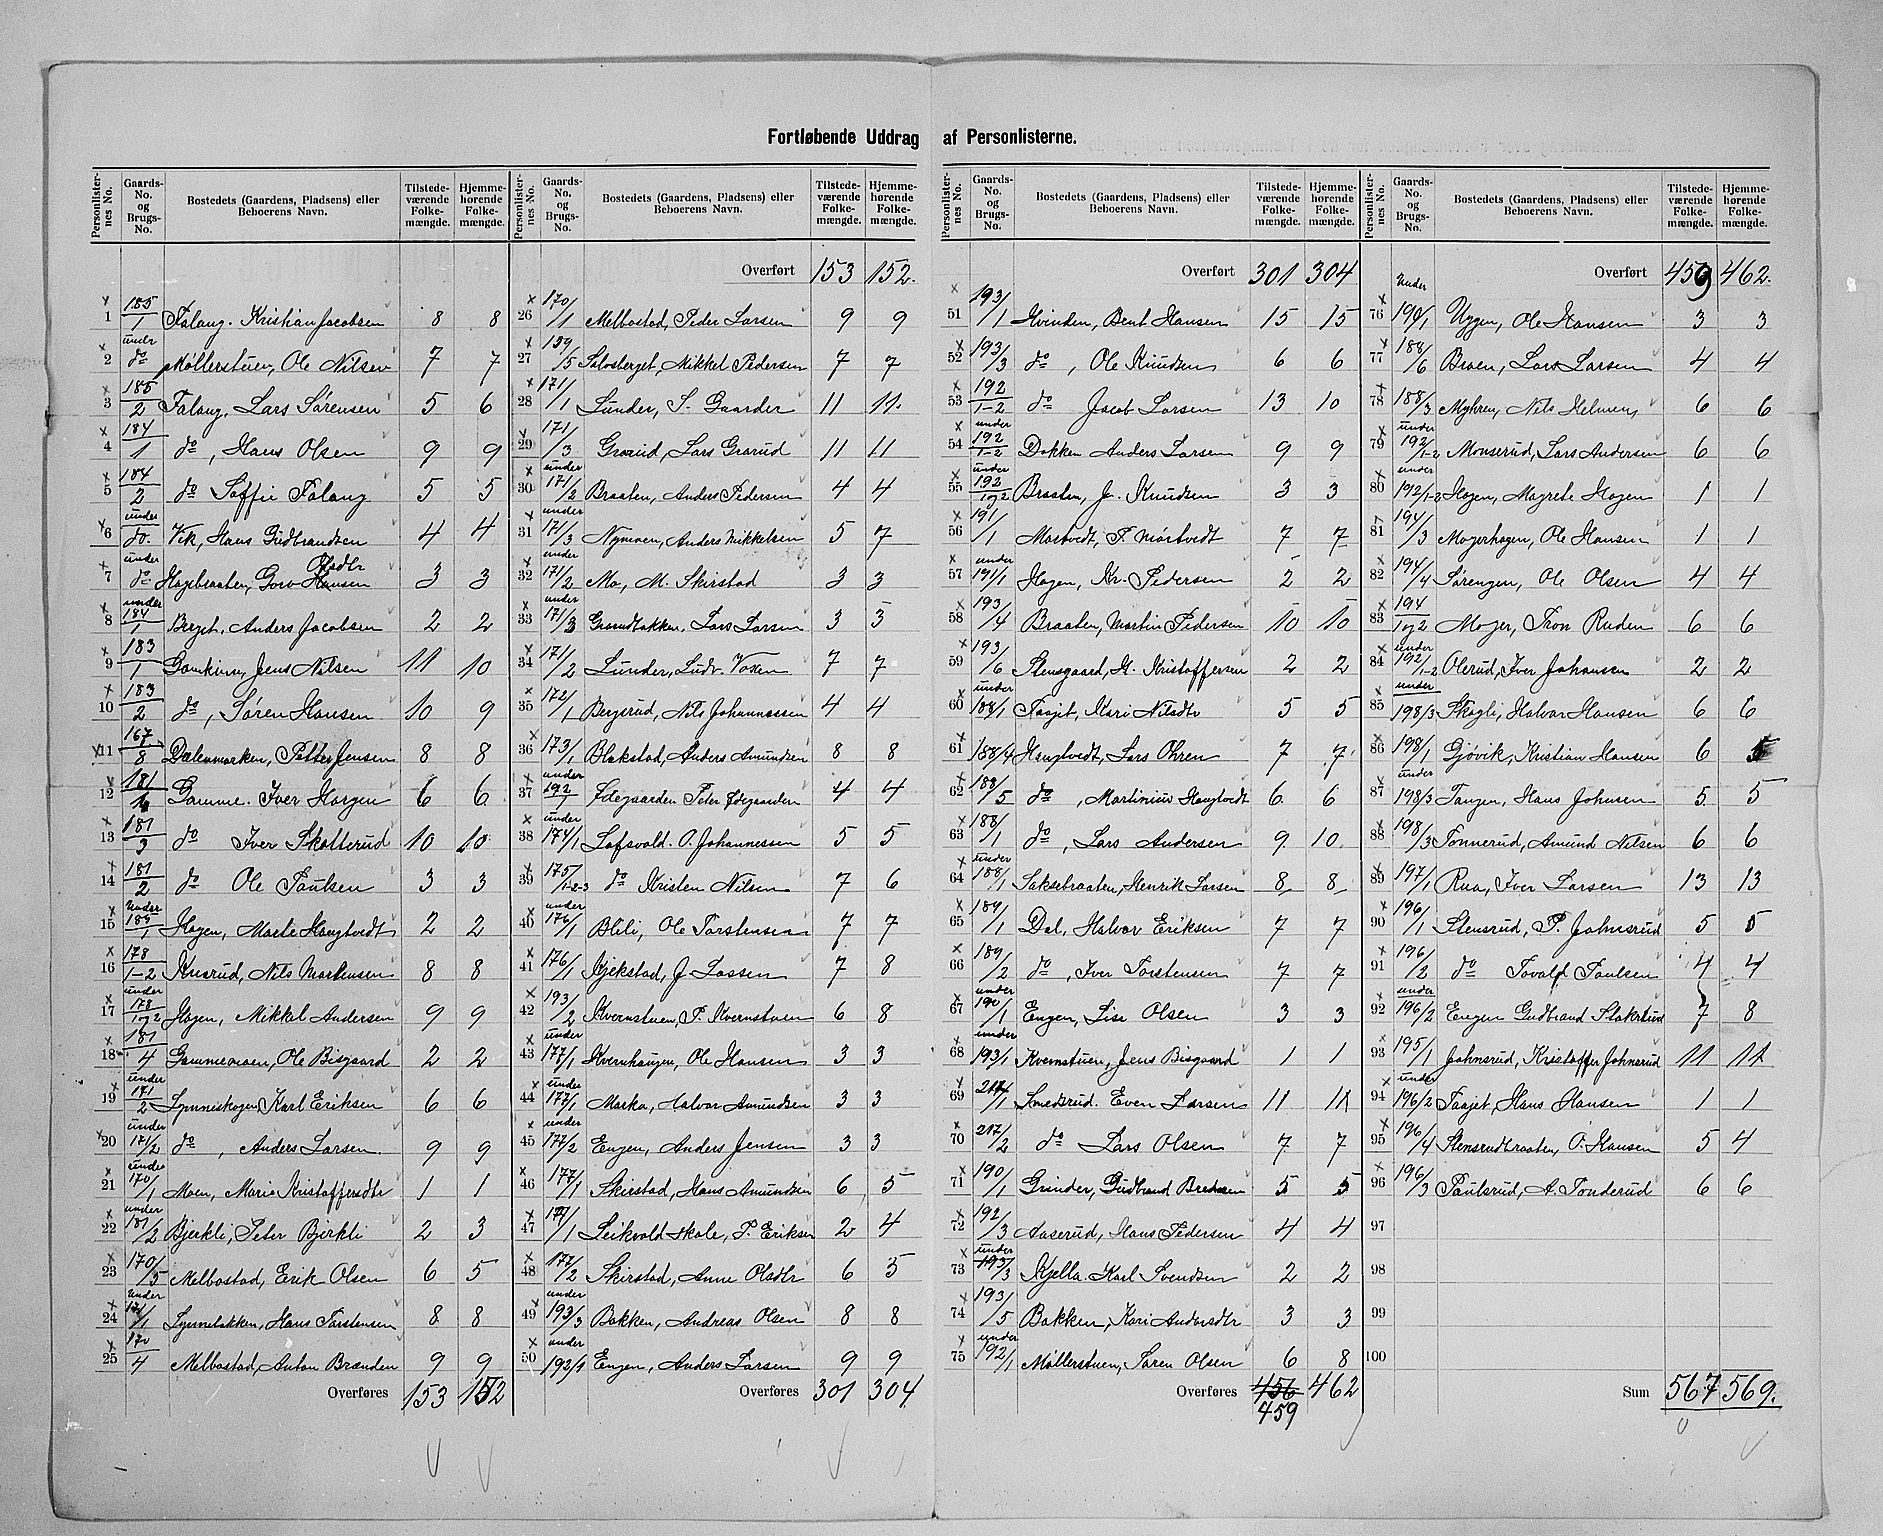 Fortløbende Uddrag af Personlisterne.
Personlisternes No. Gaards-No. og Brugs-No. Bostedets (Gaardens, Pladsens) eller Beboerens Navn. Tilstedeværende Folkemængde. Hjemmehørende Folkemængde.
1 185/1 Falang. Kristian Jacobsen 8 8
2 under do Møllerstuen, Ole Nilsen 7 7
3 185/2 Falang, Lars Sørensen 5 6
4 184/1 do, Hans Olsen 9 9
5 184/2 do Soffie Falang 5 5
6 under do. Vik, Hans Gudbrandsen 4 4
7 under do Hagebraaten, Goro Olsdtr 3 3
8 under 184/1 Berget, Anders Jacobsen 2 2
9 183/1 Gamkinn, Jens Nilsen 11 10
10 183/2 do, Søren Hansen 10 9
11 167/8 Dælenmarken, Petter Jensen 8 8
12 181/1 Gamme. Iver Horgen 6 6
13 181/3 do Iver Skotterud 10 10
14 181/2 do Ole Paulsen 3 3
15 Under 185/1 Hagen, Marte Haugtvedt 2 2
16 178/1-2 Knarud, Nils Martinsen 8 8
17 under 178/1 og 2 Hagen, Mikkel Andersen 9 9
18 181/4 Gammemoen, Ole Bisgaard 2 2
19 under 171/2 Lynneshagen Karl Eriksen 6 6
20 under 171/2 do, Anders Larsen. 9 9
21 under 170/1 Moen, Marie Kristoffersdtr 1 1
22 under 181/2 Bjerkli, Peter Bjerkli 2 3
23 170/5 Melbostad, Erik Olsen 6 5
24 under 171/1 Lynnebakken, Hans Torstensen 8 8
25 170/4 Melbostad, Anton Brænden 9 9
Overføres 153 152
Personlisternes No. Gaards-No. og Brugs-No. Bostedets (Gaardens, Pladsens) eller Beboerens Navn. Tilstedeværende Folkemængde. Hjemmehørende Folkemængde.
Overført 153 152.
26 170/1 Melbostad, Peder Larsen 9 9
27 159/5 Solosberget, Mikkel Pedersen 7 7
28 171/1 Lunder, S. Gaarder 11 11.
29 171/3 Grarud, Lars Grarud 11 11
30 under 171/2 Braaten, Anders Pedersen 4 4
31 under 171/3 Nymoen, Anders Mikkelsen 5 7
32 under 171/2 Mo, M. Skirstad 3 3
33 under 171/3 Grarudbakken. Lars Larsen 3 5
34 171/2 Lunder, Ludv. Voxen 7 7
35 172/1 Bergerud, Nils Johannessen 4 4
36 173/1 Blakstad, Anders Amundsen 8 8
37 under 192/1 Ødegaarden Peter Ødegaarden 4 4
38 under 174/1 Lofsvold. O. Johannessen 5 5
39 175/1-2-3 do Kristen Nilsen 7 6
40 under 176/1 Blili, Ole Torstensen 7 7
41 176/1 Kjekstad, J. Lassen 7 8
42 193/2 Kvernstuen, P. Kvernstuen 6 8
43 under 177/1 Kvernhaugen, Ole Hansen 3 3
44 under 177/1 Marka, Halvor Amundsen 3 3
45 under 177/2 Engen, Anders Jensen 3 3
46 177/1 Skirstad, Hans Amundsen 6 5
47 174/1 Leikvold skole, P. Eriksen 2 4
48 177/2 Skirstad, Anne Olsdtr 6 5
49 under 193/3 Bakken, Andreas Olsen 8 8
50 under 192/1 Engen, Anders Larsen 9 9
Overføres 301 304
Personlisternes No. Gaards-No. og Brugs-No. Bostedets (Gaardens, Pladsens) eller Beboerens Navn. Tilstedeværende Folkemængde. Hjemmehørende Folkemængde.
Overført 301 304
51 193/1 Hvinden, Bent Hansen 15 15
52 193/3 do, Ole Knudsen 6 6
53 192/1-2 do Jacob Larsen 13 10
54 under 192/1-2 Dokken Anders Larsen 9 9
55 under 192/1 og 2 Braaten, Jo. Knudsen 3 3
56 191/1 Mortvedt, P. Mortvedt 7 7
57 under 191/1 Hagen, Kr. Pedersen 2 2
58 193/4 Braaten, Martin Pedersen 10 10
59 193/6 Stensgaard, H. Kristoffersen 2 2
60 under 188/1 Faajet, Kari Nilsdtr 5 5
61 188/4 Haugtvedt, Lars Ohren 7 7
62 188/5 do, Martinius Haugtvedt 6 6
63 188/1 do, Lars Andersen 9 10
64 under 188/1 Saksebraaten, Henrik Larsen 8 8
65 189/1 Dal, Halvor Eriksen 7 7
66 189/2 do, Iver Torstensen 7 7
67 under 190/1 Engen, Lise Olsen 3 3
68 under 193/1 Kvernstuen, Jens Bisgaard 1 1
69 217/1 Smedsrud. Even Larsen 11 11
70 217/2 do Lars Olsen 7 7
71 190/1 Grinder, Gudbrand Bredesen 5 5
72 192/3 Aaserud, Hans Pedersen 4 4
73 under 193/3 Kjella. Karl Svendsen 2 2
74 193/5 Bakken, Kari Andersdtr 3 3
75 under 192/1 Møllerstuen, Søren Olsen 6 8
Overføres 456 462
459
Personlisternes No. Gaards-No. og Brugs-No. Bostedets (Gaardens, Pladsens) eller Beboerens Navn. Tilstedeværende Folkemængde. Hjemmehørende Folkemængde.
Overført 459 462.
76 Under 194/1 Uggen, Ole Hansen 3 3
77 188/6 Braen, Lars Larsen 4 4
78 188/3 Myhren, Nils Helmen, 6 6
79 under 192/1-2 Monserud, Lars Andersen 6 6
80 under 192/1-2 Hagen, Magrete Hagen 1 1
81 194/3 Mogerhagen, Ole Hansen 1 1
82 194/4 Sørengen, Ole Olsen 4 4
83 194/1 og 2 Moger, Tron Ruden 6 6
84 under 192/1-2 Olerud, Iver Johansen 2 2
85 under 198/3 Skogli, Halvor Hansen 6 6
86 198/1 Gjøvik, Kristian Hansen 6 5
87 under 198/3 Tangen, Hans Johnsen 5 5
88 198/3 Tonnerud, Amund Nilsen 6 6
89 197/1 Rua, Iver Larsen 13 13
90 196/1 Stensrud, P. Johnsrud 5 5
91 196/2 do Tovald Paulsen 4 4
92 under 196/2 Engen Gudbrand Stakerud 7 8
93 195/1 Johnsrud, Kristoffer Johnsrud 11 11
94 under 196/2 Faajet, Hans Hansen 1 1
95 196/4 Stensrudbraaten, O. Hansen 5 4
96 196/3 Paulsrud, A. Tonderud 6 6
97
98
99
100
Sum 567 569.